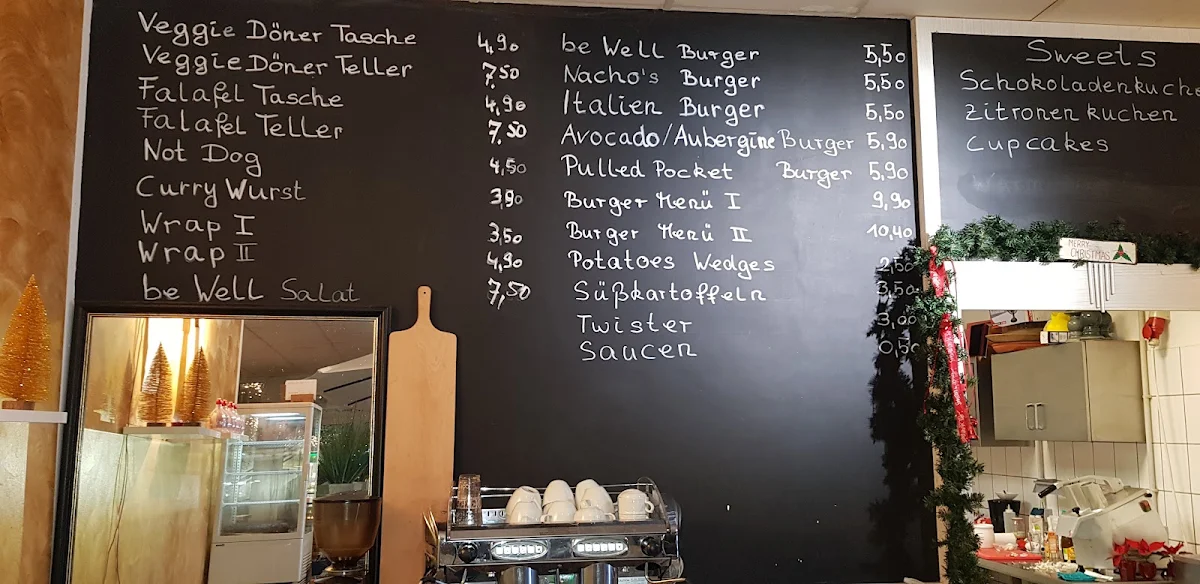 Veggie Döner Tasche 4,90
Veggie Döner Teller 7,50
Falafel Tasche 4,90
Falafel Teller 7,50
Not Dog 4,50
Curry Wurst 3,90
Wrap I 3,50
Wrap II 4,90
be Well Salat 7,50
be Well Burger 5,50
Nacho's Burger 5,50
Italien Burger 5,50
Avocado/Aubergine Burger 5,90
Pulled Pocket Burger 5,90
Burger Menü I 9,90
Burger Menü II 10,40
Potatoes Wedges 2,50
Süßkartoffeln 3,50
Twister 3,00
Saucen 0,50
Sweets
Schokoladenkuche
Zitronenkuchen
Cupcakes
MERRY
CHRISTMAS